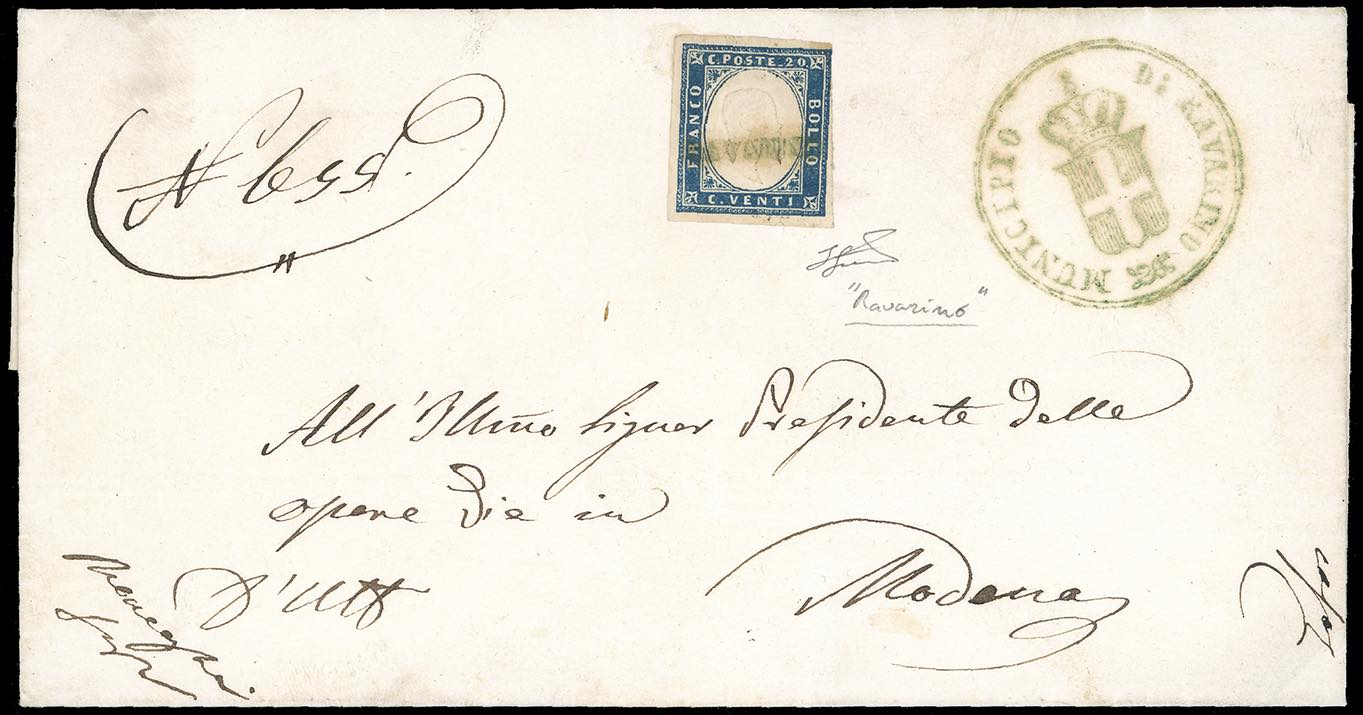 N 655.
C. POSTE. 20
FRANCO
BOLLO
C. VENTI
MUNICIPIO DI RAVARINO
"Ravarino"
All'Illmo Signor Presidente delle
opere Pie in
D'Uff
Modena